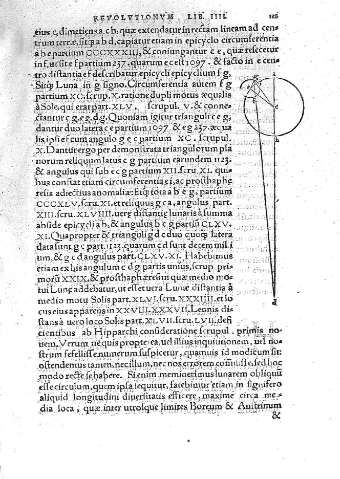 REVOLVTIONVM LIB. IIII.
eius c, dimetiens a c b, quæ extendatur in rectam lineam ad cen
trum terræ, sitq́ a b d, capiatur etiam in epicyclo circumferentia
a b e partium CCCXXXIII, & coniungantur c e, quæ resecetur
in f, ut sit e f partium 237. quarum e c est 1097. & facto in e cen-
tro distantia e f describatur epicyclij epicyclium f g.
Sitq́ Luna in g signo. Circumferentia autem f g
partium XC. scrup. X. ratione dupli motus æqualis
à Sole, qui erat part. XLV. scrupul. V. & connec̄
tantur c g, e g, d g. Quoniam igitur trianguli c e g,
dantur duo latera c e partium 1097 & e g 237. æqua
lis ipsi e f cum angulo g e c partium XC. scrupul.
X. Dantur ergo per demonstrata triangulorum pla
norum reliquum latus c g partium earundem 1123.
& angulus qui sub e c g partium XII. scru. XI. qui
bus constat etiam circumferentia e i, ac prosthaphæ
resis adiectius anomaliæ: fitq́ tota a b e g, partium
CCCXLV. scru. XI. et reliquus g c a, angulus part.
XIII. scru. XLVIIII. ueræ distantiæ lunaris à summa
abside epicyclij a b, & angulus b c g partium CLXV.
XI. Quapropter & trianguli g d c duo quoq́ latera
data sunt g c part. 1123. quarum c d sunt decem mili
um, & g c d angulus part. CLXV. XI. Habebimus
etiam ex his angulum c d g partis unius, scrup. pri
morū XXIX. & prosthaphæresim quæ medio mo-
tui Lunæ addebatur, ut esset uera Lunæ distantia à
medio motu Solis part. XLVI. scru. XXXIIII, et lo
cus eius apparens in XXVIII. XXXVII. Leonis dis
tans à uero loco Solis part. XLVII. scru. LVII. defi
cientibus ab Hipparchi consideratione scrupul. primis no-
uem, Verum ne quis propterea, uel illius inquisitionem, uel no-
strum fefellisse numerum suspicetur, quamuis id modicum sit:
ostendemus tamen, nec illum, nec nos errorem commisisse, sed hoc
modo recte se habere. Si enim meminerimus lunarem obliquū
esse circulum, quem ipsa sequitur, fatebimur etiam in signifero
aliquid longitudini diuersitatis efficere, maxime circa me-
dia loca, quæ inter utrosque limites Boreum & Austrinum
&